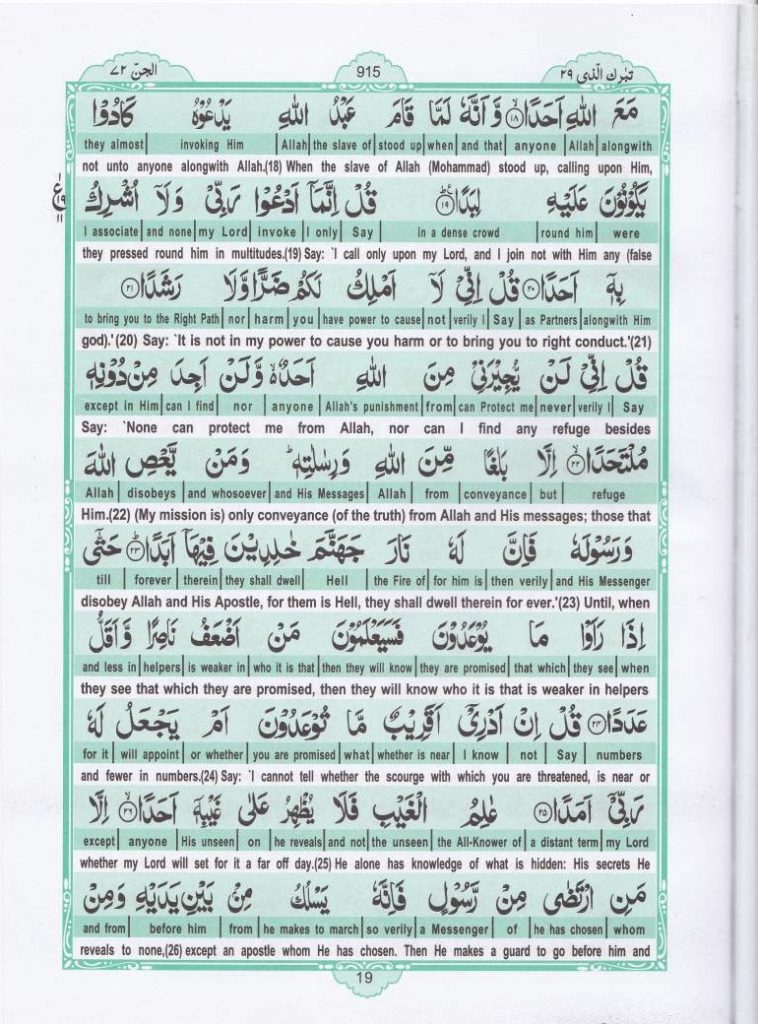 الجنّ ٧٢ 915 تبٰرك الّذی ٢٩
مَعَ اللّٰهِ اَحَدًا ﴿١٨﴾ وَّاَنَّهٗ لَمَّا قَامَ عَبْدُ اللّٰهِ يَدْعُوْهُ كَادُوْا
they almost | invoking Him | Allah | the slave of | stood up | when | and that | anyone | Allah | alongwith
not unto anyone alongwith Allah.(18) When the slave of Allah (Mohammad) stood up, calling upon Him,
يَكُوْنُوْنَ عَلَيْهِ لِبَدًا ﴿١٩﴾ قُلْ اِنَّمَاۤ اَدْعُوْا رَبِّيْ وَلَاۤ اُشْرِكُ
ع ١٩ ١١
I associate | and none | my Lord | invoke | I only | Say | in a dense crowd | round him | were
they pressed round him in multitudes.(19) Say: `I call only upon my Lord, and I join not with Him any (false
بِهٖۤ اَحَدًا ﴿٢٠﴾ قُلْ اِنِّيْ لَاۤ اَمْلِكُ لَكُمْ ضَرًّا وَّلَا رَشَدًا ﴿٢١﴾
to bring you to the Right Path | nor | harm | you | have power to cause | not | verily I | Say | as Partners | alongwith Him
god).'(20) Say: `It is not in my power to cause you harm or to bring you to right conduct.'(21)
قُلْ اِنِّيْ لَنْ يُّجِيْرَنِيْ مِنَ اللّٰهِ اَحَدٌ ۙ وَّلَنْ اَجِدَ مِنْ دُوْنِهٖ
except in Him | can I find | nor | anyone | Allah's punishment | from | can Protect me | never | verily I | Say
Say: `None can protect me from Allah, nor can I find any refuge besides
مُلْتَحَدًا ﴿٢٢﴾ اِلَّا بَلٰغًا مِّنَ اللّٰهِ وَرِسٰلٰتِهٖ ؕ وَمَنْ يَّعْصِ اللّٰهَ
Allah | disobeys | and whosoever | and His Messages | Allah | from | conveyance | but | refuge
Him.(22) (My mission is) only conveyance (of the truth) from Allah and His messages; those that
وَرَسُوْلَهٗ فَاِنَّ لَهٗ نَارَ جَهَنَّمَ خٰلِدِيْنَ فِيْهَاۤ اَبَدًا ﴿٢٣﴾ حَتّٰۤى
till | forever | therein | they shall dwell | Hell | the Fire of | for him is | then verily | and His Messenger
disobey Allah and His Apostle, for them is Hell, they shall dwell therein for ever.'(23) Until, when
اِذَا رَاَوْا مَا يُوْعَدُوْنَ فَسَيَعْلَمُوْنَ مَنْ اَضْعَفُ نَاصِرًا وَّاَقَلُّ
and less in | helpers | is weaker in | who it is that | then they will know | they are promised | that which | they see | when
they see that which they are promised, then they will know who it is that is weaker in helpers
عَدَدًا ﴿٢٤﴾ قُلْ اِنْ اَدْرِيْۤ اَقَرِيْبٌ مَّا تُوْعَدُوْنَ اَمْ يَجْعَلُ لَهٗ
for it | will appoint | or whether | you are promised | what | whether is near | I know | not | Say | numbers
and fewer in numbers.(24) Say: `I cannot tell whether the scourge with which you are threatened, is near or
رَبِّيْۤ اَمَدًا ﴿٢٥﴾ عٰلِمُ الْغَيْبِ فَلَا يُظْهِرُ عَلٰى غَيْبِهٖۤ اَحَدًا ﴿٢٦﴾ اِلَّا
except | anyone | His unseen | on | he reveals | and not | the unseen | the All-Knower of | a distant term | my Lord
whether my Lord will set for it a far off day.(25) He alone has knowledge of what is hidden: His secrets He
مَنِ ارْتَضٰى مِنْ رَّسُوْلٍ فَاِنَّهٗ يَسْلُكُ مِنْۢ بَيْنِ يَدَيْهِ وَمِنْ
and from | before him | from | he makes to march | so verily | a Messenger | of | he has chosen | whom
reveals to none,(26) except an apostle whom He has chosen. Then He makes a guard to go before him and
19